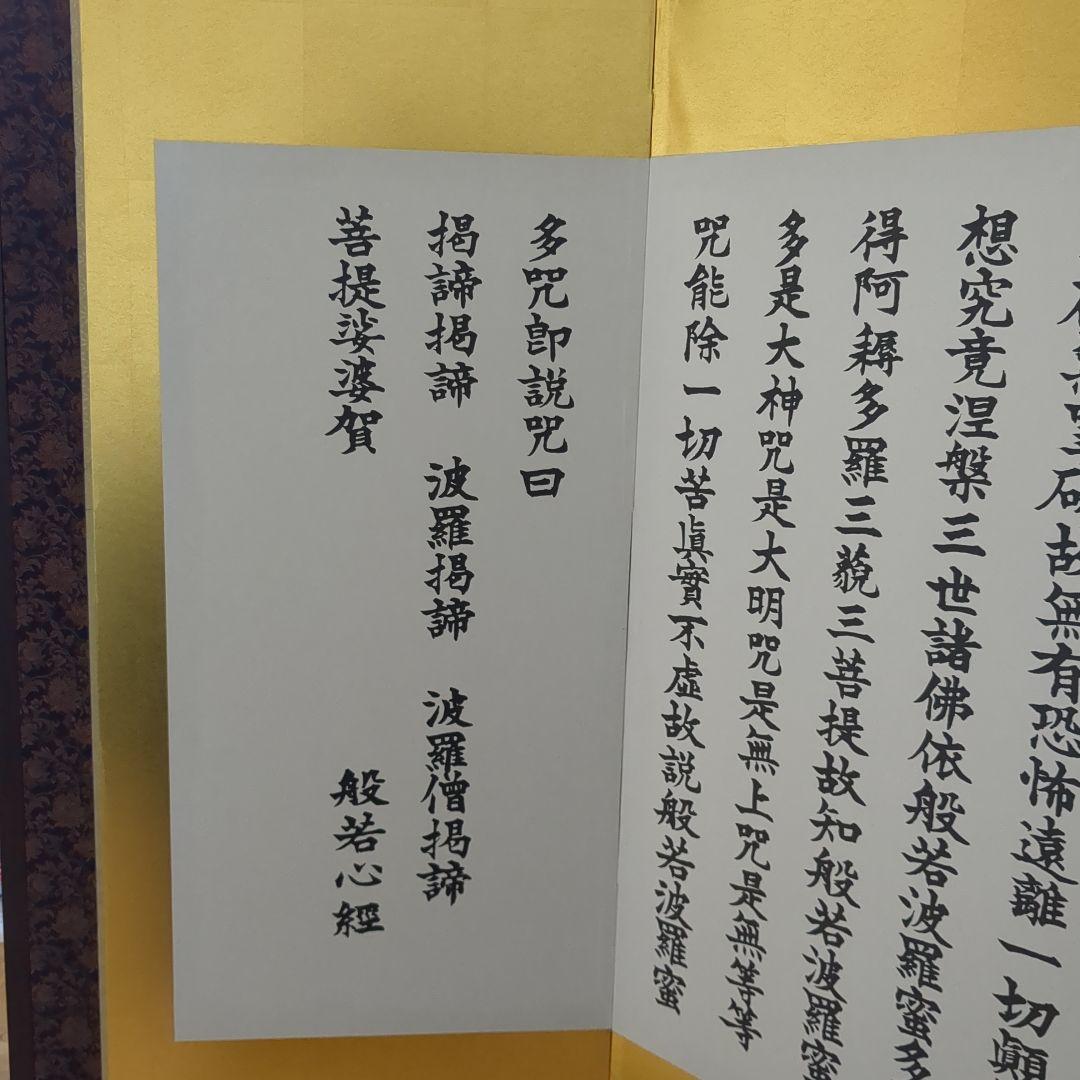 故無有恐怖遠離一切顛
想究竟涅槃三世諸佛依般若波羅蜜多
得阿耨多羅三藐三菩提故知般若波羅蜜
多是大神咒是大明咒是無上咒是無等等
咒能除一切苦眞實不虛故説般若波羅蜜
多咒卽説咒曰
揭諦揭諦 波羅揭諦 波羅僧揭諦
菩提娑婆賀 般若心經